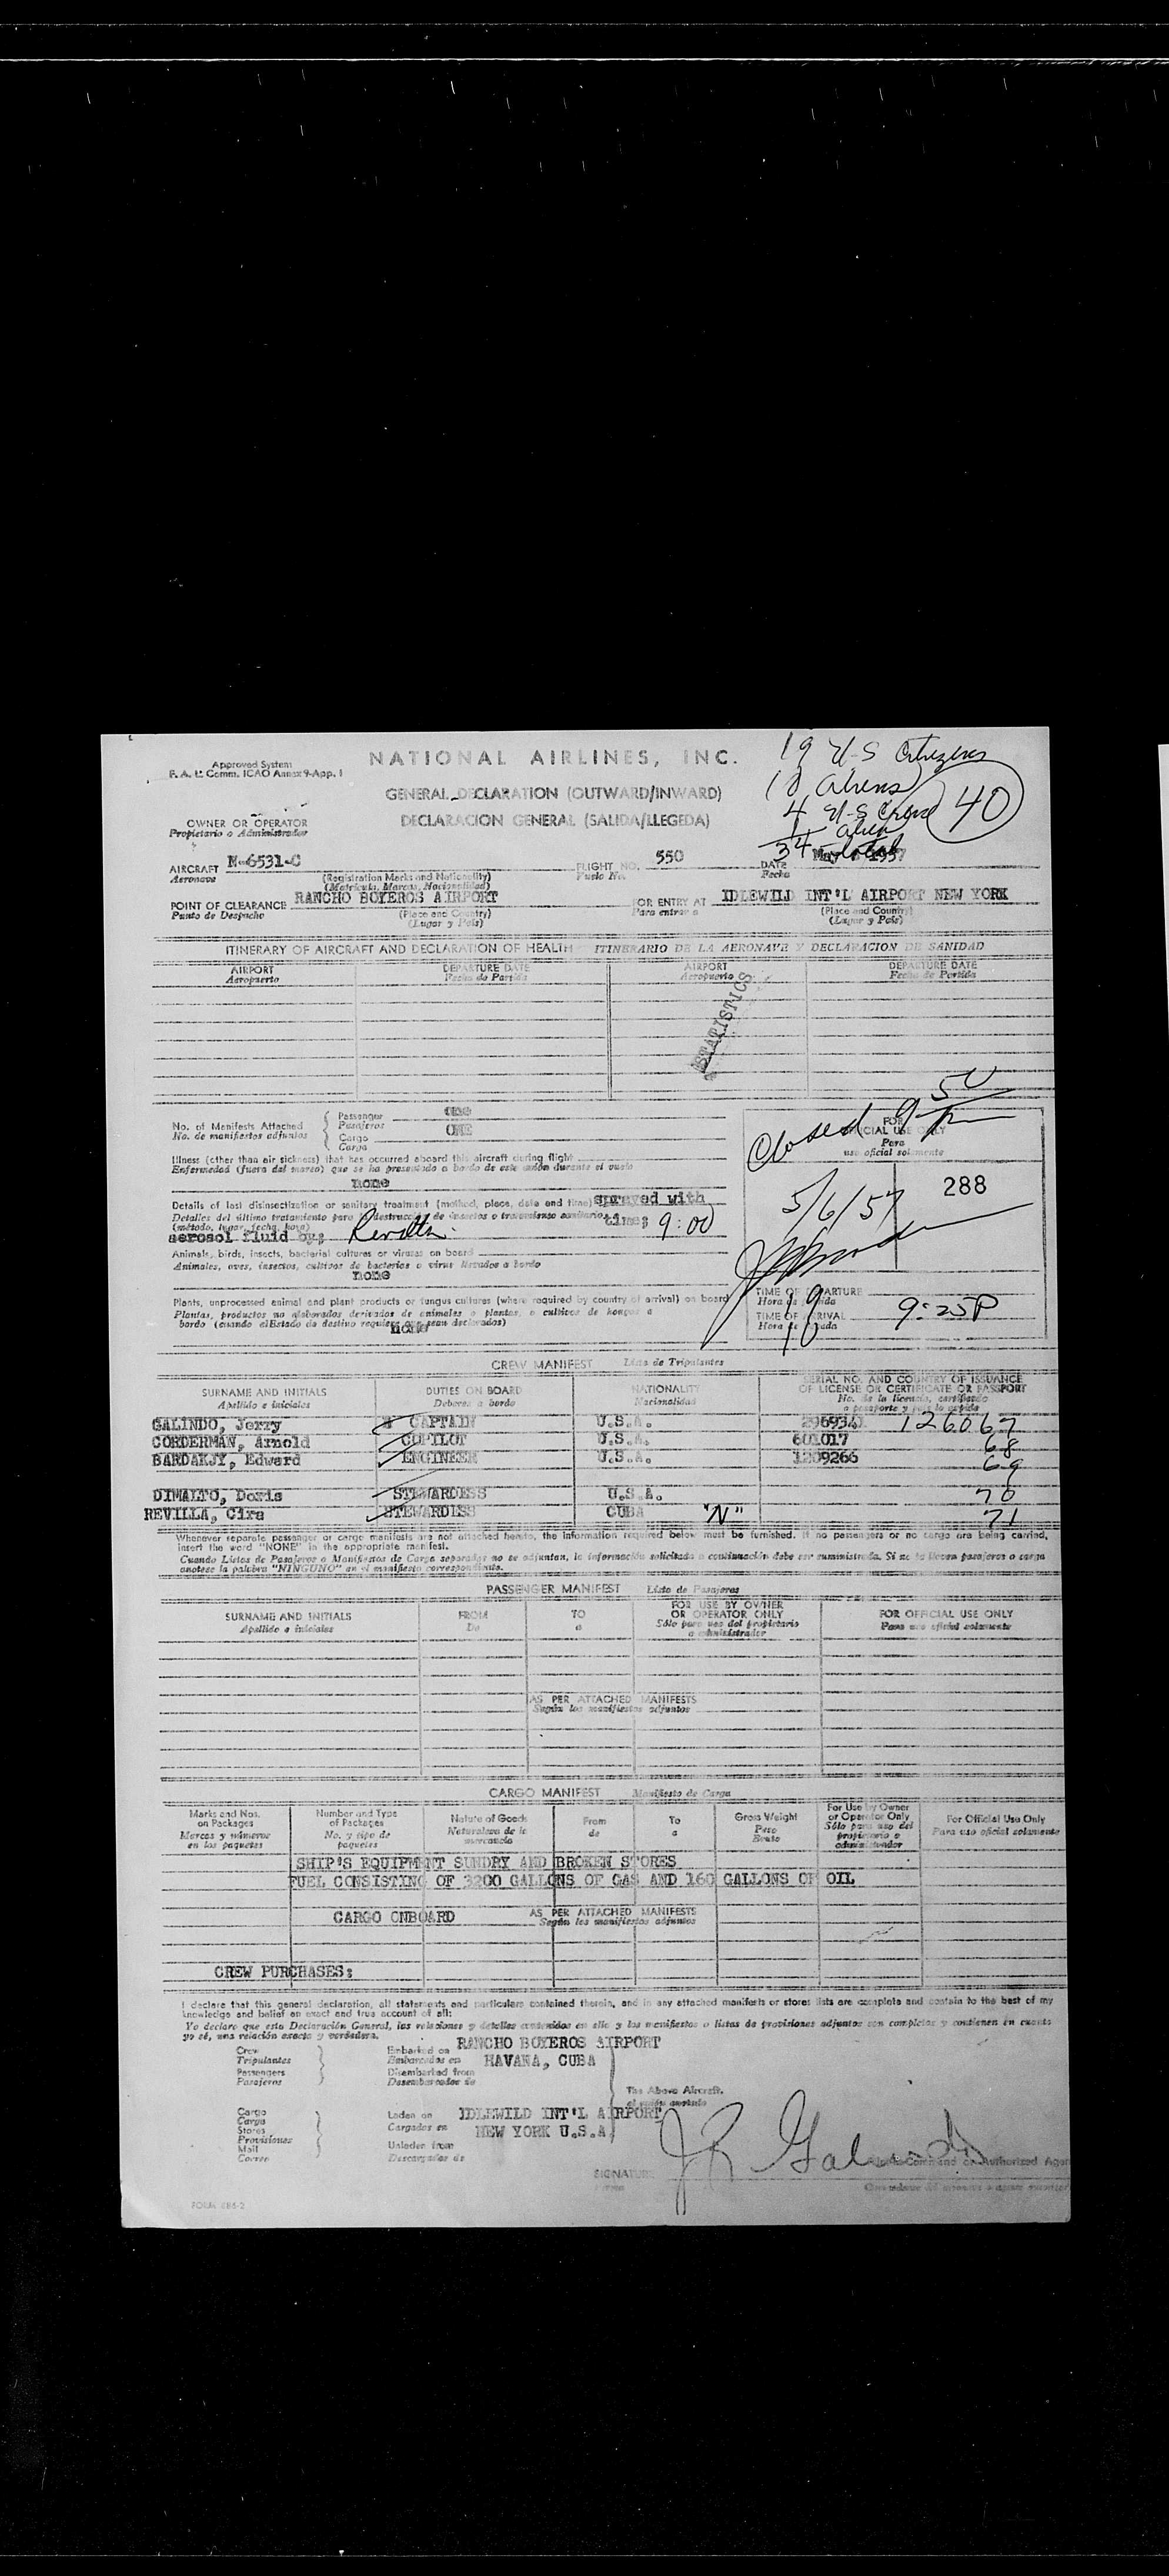 NATIONAL AIRLINES, INC.
Approved System
F. A. L. Comm. ICAO Annex 9-App. 1
19 U-S Citizens
10 Aliens
4 U-S Crew
1 alien
34 total
40
GENERAL DECLARATION (OUTWARD/INWARD)
DECLARACION GENERAL (SALIDA/LLEGEDA)
OWNER OR OPERATOR
Propietario o Administrador
AIRCRAFT N-6531-C FLIGHT NO. 550 DATE May 6 1957
Aeronave Vuelo No. Fecha
(Registration Marks and Nationality)
(Matricula, Marcas, Nacionalidad)
POINT OF CLEARANCE RANCHO BOYEROS AIRPORT FOR ENTRY AT IDLEWILD INT'L AIRPORT NEW YORK
Punto de Despacho (Place and Country) Para entrar a (Place and Country)
(Lugar y Pais) (Lugar y Pais)
ITINERARY OF AIRCRAFT AND DECLARATION OF HEALTH ITINERARIO DE LA AERONAVE Y DECLARACION DE SANIDAD
AIRPORT DEPARTURE DATE AIRPORT DEPARTURE DATE
Aeropuerto Fecha de Partida Aeropuerto Fecha de Partida
STATISTICS
No. of Manifests Attached Passenger ONE
No. de manifiestos adjuntos Pasajeros
Cargo ONE
Carga
Closed 9 50
FOR OFFICIAL USE ONLY
Para
uso oficial solamente
Illness (other than air sickness) that has occurred aboard this aircraft during flight
Enfermedad (fuera del mareo) que se ha presentado a bordo de este avión durante el vuelo
none
5/6/57
288
Details of last disinsectization or sanitary treatment (method, place, date and time) sprayed with
Detalles del último tratamiento para la destrucción de insectos o tratamiento sanitario
(método, lugar, fecha, hora)
aerosol fluid by; Revilla time; 9:00
Animals, birds, insects, bacterial cultures or viruses on board
Animales, aves, insectos, cultivos de bacterias o virus llevados a bordo
none
Plants, unprocessed animal and plant products or fungus cultures (where required by country of arrival) on board
Plantas, productos no elaborados derivados de animales o plantas, o cultivos de hongos a
bordo (cuando el Estado de destino requiere que sean declarados)
none
TIME OF DEPARTURE 19
Hora de Salida
TIME OF ARRIVAL 10 9:25P
CREW MANIFEST Lista de Tripulantes
SURNAME AND INITIALS DUTIES ON BOARD NATIONALITY SERIAL NO. AND COUNTRY OF ISSUANCE
OF LICENSE OR CERTIFICATE OR PASSPORT
Apellido e iniciales Deberes a bordo Nacionalidad No. de la licencia, certificado
o pasaporte y país lo expide
GALINDO, Jerry CAPTAIN U.S.A. 296934 126067
CORDERMAN, Arnold COPILOT U.S.A. 601017 68
BARDAKJY, Edward ENGINEER U.S.A. 1209266 69
DIMALTO, Doris STEWARDESS U.S.A. 70
REVILLA, Cira STEWARDESS CUBA "N" 71
Whenever separate passenger or cargo manifests are not attached hereto, the information required below must be furnished. If no passengers or no cargo are being carried,
insert the word "NONE" in the appropriate manifest.
Cuando Listas de Pasajeros o Manifiestos de Carga separados no se adjuntan, la información solicitada a continuación debe ser suministrada. Si no se llevan pasajeros o carga
anotese la palabra "NINGUNO" en el manifiesto correspondiente.
PASSENGER MANIFEST Lista de Pasajeros
SURNAME AND INITIALS FROM TO FOR USE BY OWNER
OR OPERATOR ONLY FOR OFFICIAL USE ONLY
Apellido e iniciales De a Sólo para uso del propietario
o administrador Para uso oficial solamente
AS PER ATTACHED MANIFESTS
Según los manifiestos adjuntos
CARGO MANIFEST Manifiesto de Carga
Marks and Nos.
on Packages
Marcas y números
en los paquetes
Number and Type
of Packages
No. y tipo de
paquetes
Nature of Goods
Naturaleza de la
mercancía
From
de
To
a
Gross Weight
Peso
Bruto
For Use by Owner
or Operator Only
Sólo para uso del
propietario o
administrador
For Official Use Only
Para uso oficial solamente
SHIP'S EQUIPMENT SUNDRY AND BROKEN STORES
FUEL CONSISTING OF 3200 GALLONS OF GAS AND 160 GALLONS OF OIL
CARGO ONBOARD AS PER ATTACHED MANIFESTS
Según los manifiestos adjuntos
CREW PURCHASES:
I declare that this general declaration, all statements and particulars contained therein, and in any attached manifests or stores lists are complete and contain to the best of my
knowledge and belief an exact and true account of all:
Yo declaro que esta Declaración General, las relaciones y detalles contenidos en ella y los manifiestos o listas de provisiones adjuntos son completos y contienen en cuanto
yo sé, una relación exacta y verdadera.
Crew
Tripulantes
Passengers
Pasajeros
Embarked on RANCHO BOYEROS AIRPORT
Embarcados en HAVANA, CUBA
Disembarked from
Desembarcados de
The Above Aircraft.
Cargo
Carga
Stores
Provisiones
Mail
Correo
Laden on IDLEWILD INT'L AIRPORT
Cargados en NEW YORK U.S.A.
Unladen from
Descargados de
SIGNATURE J R Galindo
Firma
FORM 486-2